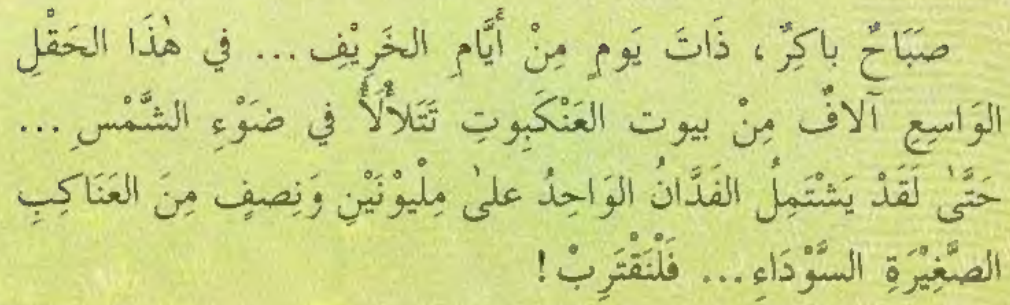 صَبَاحٌ باكِرٌ ، ذَاتَ يَومٍ مِنْ أَيَّامِ الخَرِيْفِ ... في هٰذَا الحَقْلِ
الوَاسِعِ آلافٌ مِنْ بيوت العَنْكَبوتِ تَتَلأْلَأُ في ضَوْءِ الشَّمْسِ ...
حَتَّىٰ لَقَدْ يَشْتَمِلُ الفَدَّانُ الوَاحِدُ علىٰ مِلْيوْنَيْنِ وَنِصفٍ مِنَ العَنَاكِبِ
الصَّغِيْرَةِ السَّوْدَاءِ ... فَلْنَقْتَرِبْ !